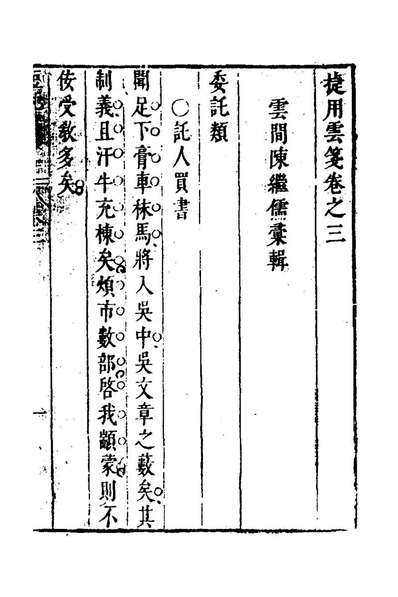 捷用雲箋卷之三
雲間陳繼儒彚輯
委託類
○託人買書
聞足下膏車秣馬將入吳中吳文章之藪矣其
制義且汗牛充棟矣煩市數部啓我顓蒙則不
佞受教多矣